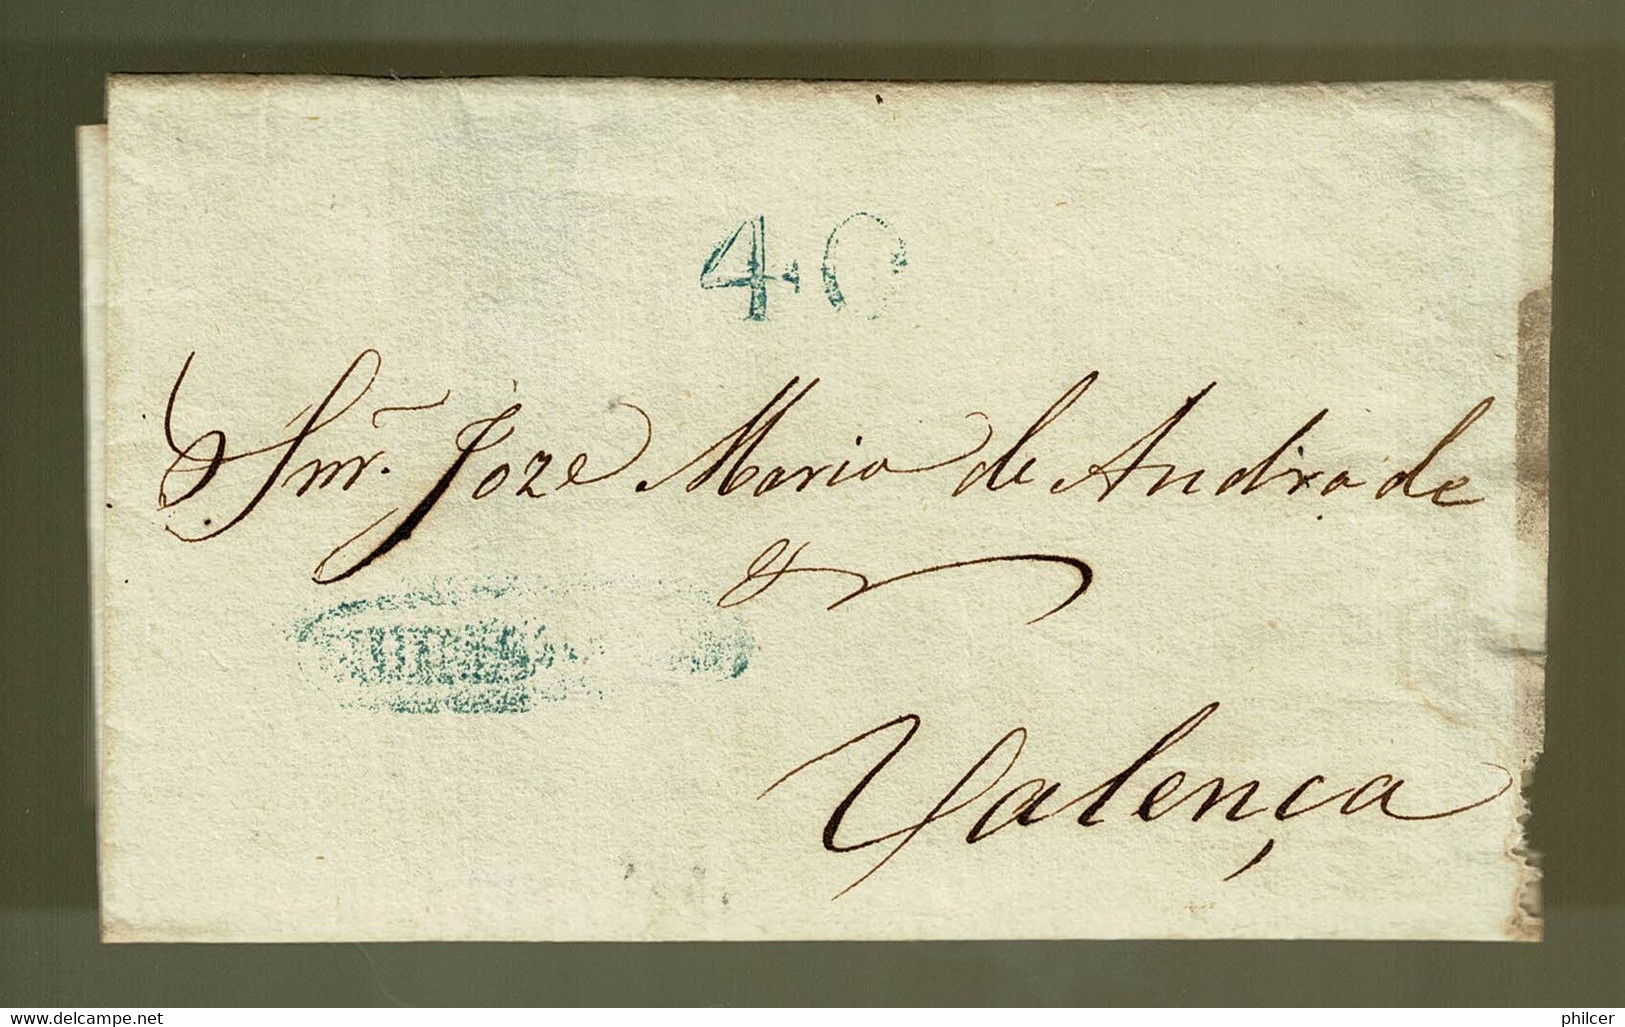 4·0
Snr. Joze Maria de Andrade
Valença
www.delcampe.net
philcer